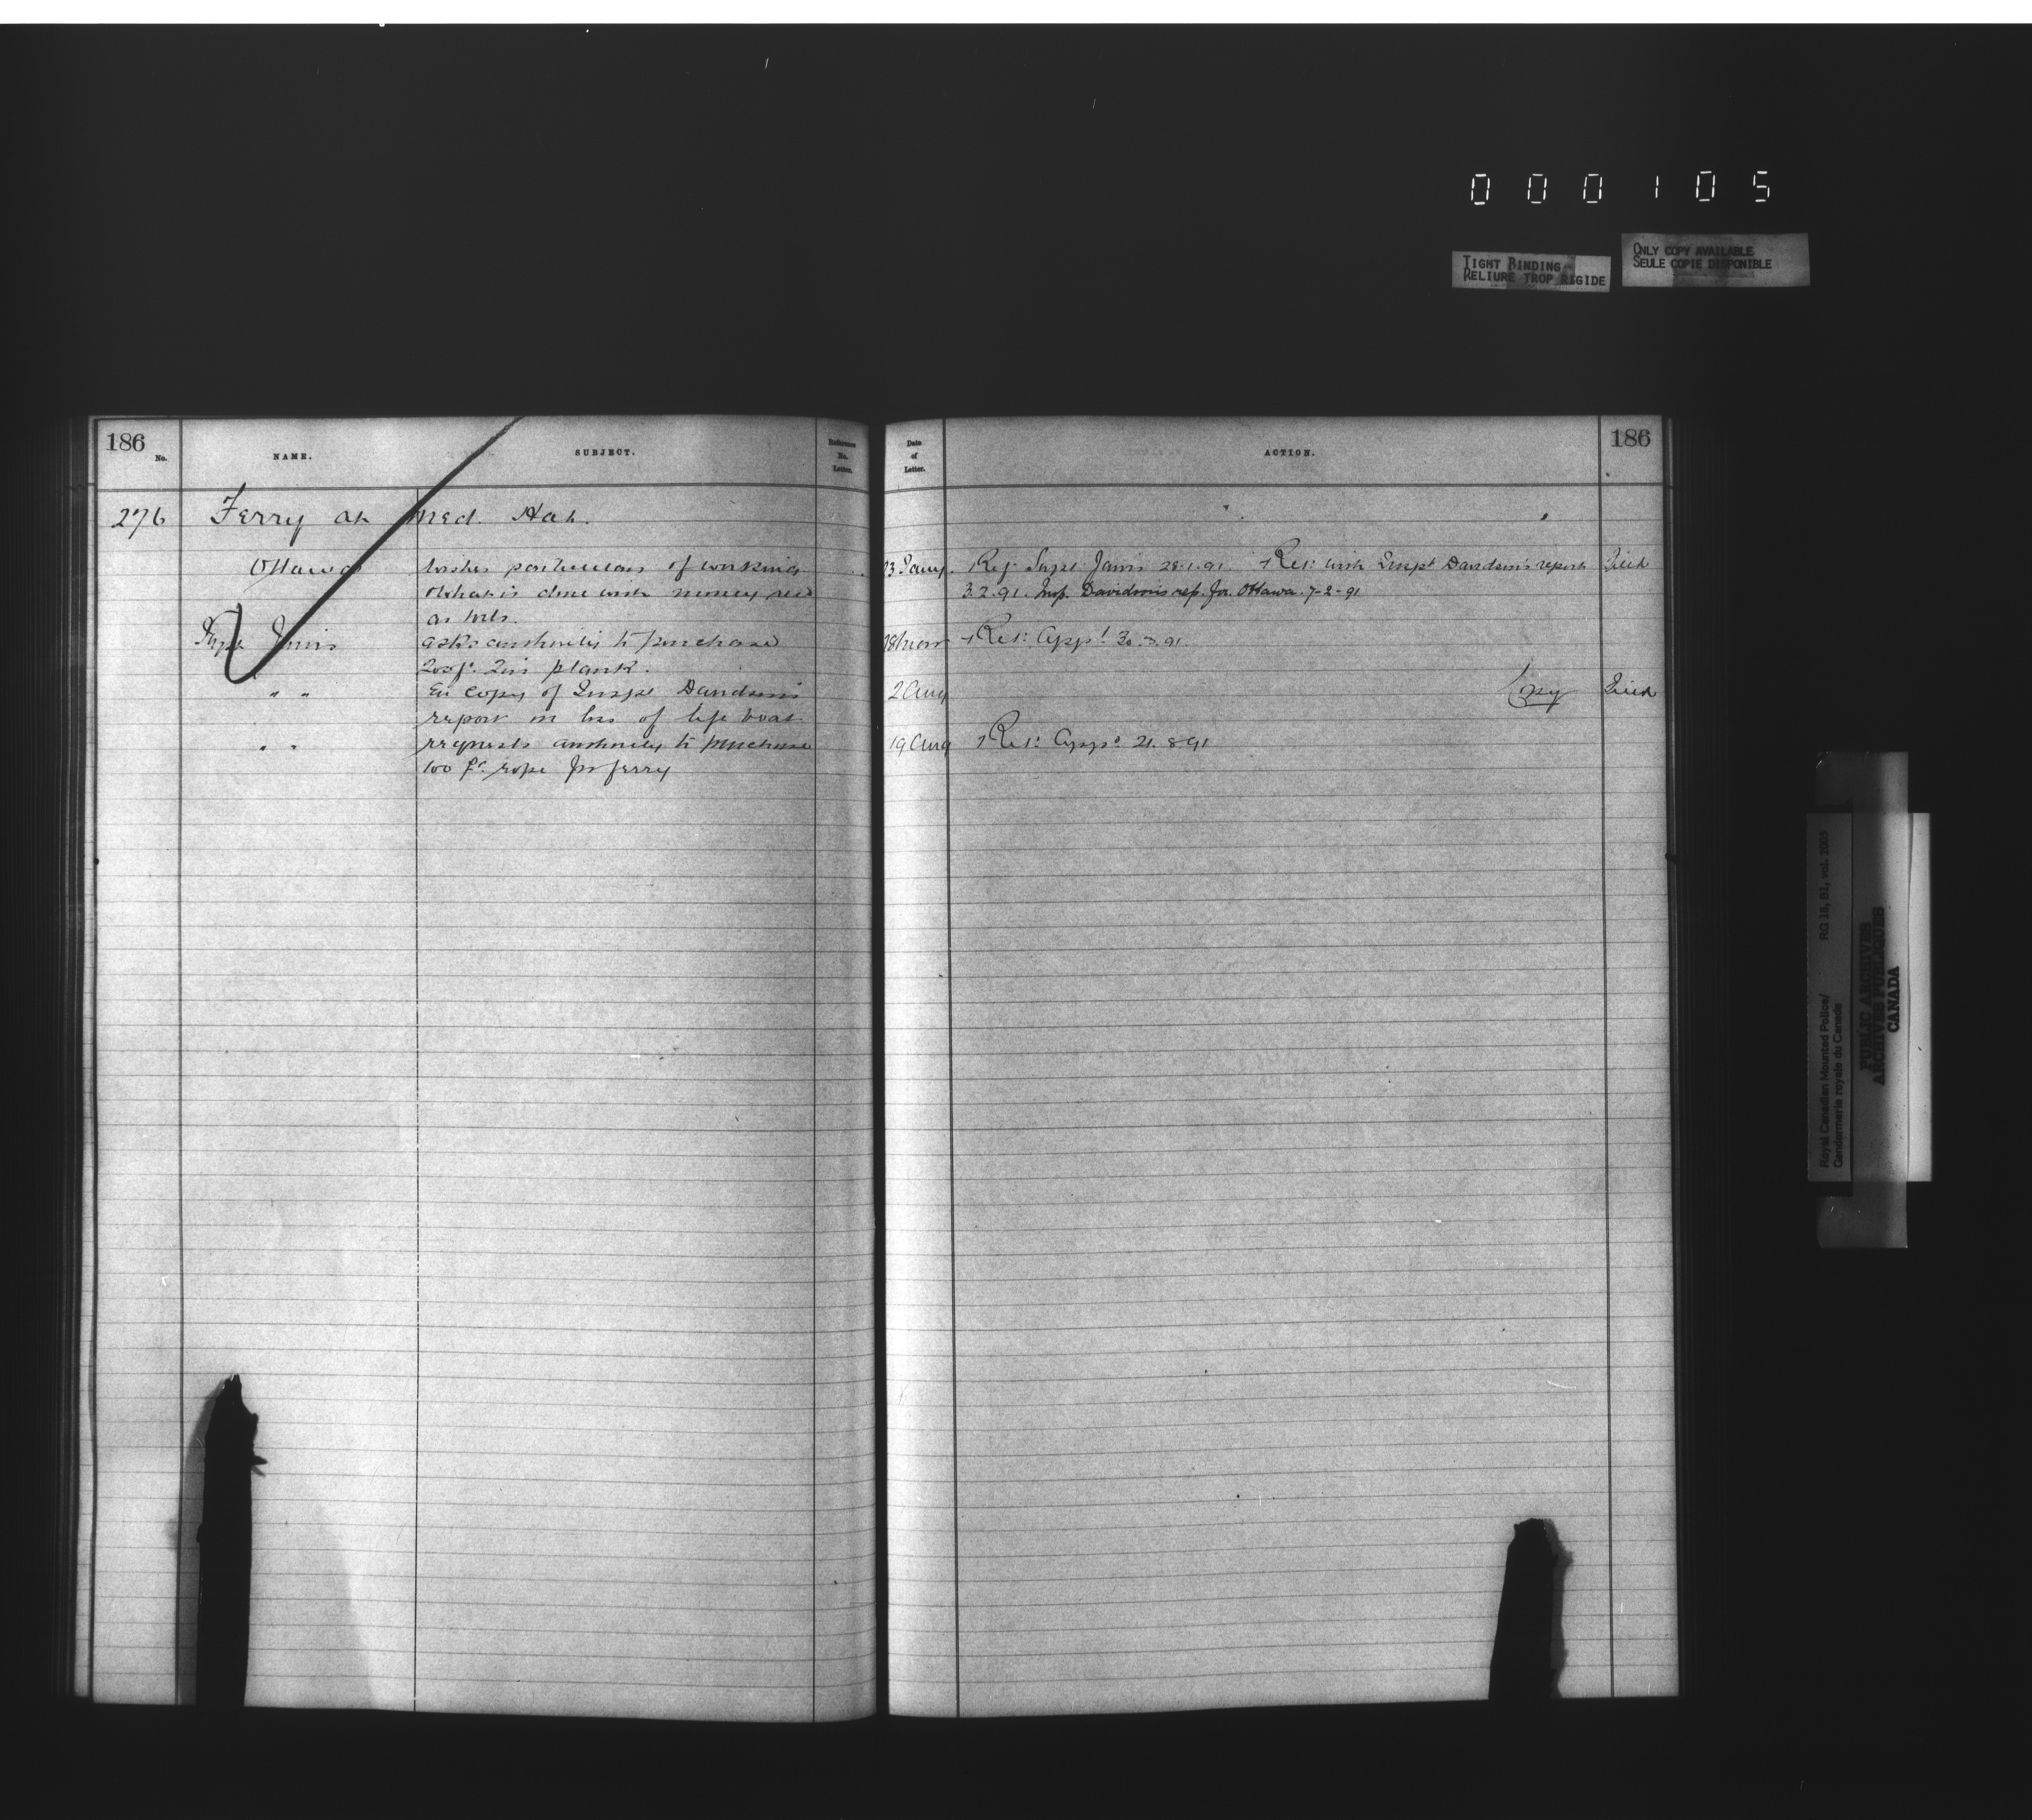 0 0 0 1 0 5
TIGHT BINDING
RELIURE TROP RIGIDE
ONLY COPY AVAILABLE
SEULE COPIE DISPONIBLE
186
No.
NAME.
SUBJECT.
Reference
No.
Letter.
Date
of
Letter.
ACTION.
186
276 Ferry at Med. Hat.
Ottawa wishes particulars of working 23 Jany. Ref. Supt Jarvis 28.1.91. Ret: with Inspt Davidson's report
What is done with money recd 3.2.91. Insp. Davidson's rep. for. Ottawa. 7-2-91
as tolls.
Supt Jarvis asks authority to purchase 28 Ret: appd 30.3.91.
200 f. 2in plank.
" " En copy of Inspt Davidson's 2 Aug Copy
report on loss of life boat
" " requests authority to purchase 19 Aug Ret: Appd 21.8.91
100 ft. rope for ferry
Royal Canadian Mounted Police/
Gendarmerie royale du Canada
RG 18, B1, vol. 2005
PUBLIC ARCHIVES
ARCHIVES PUBLIQUES
CANADA